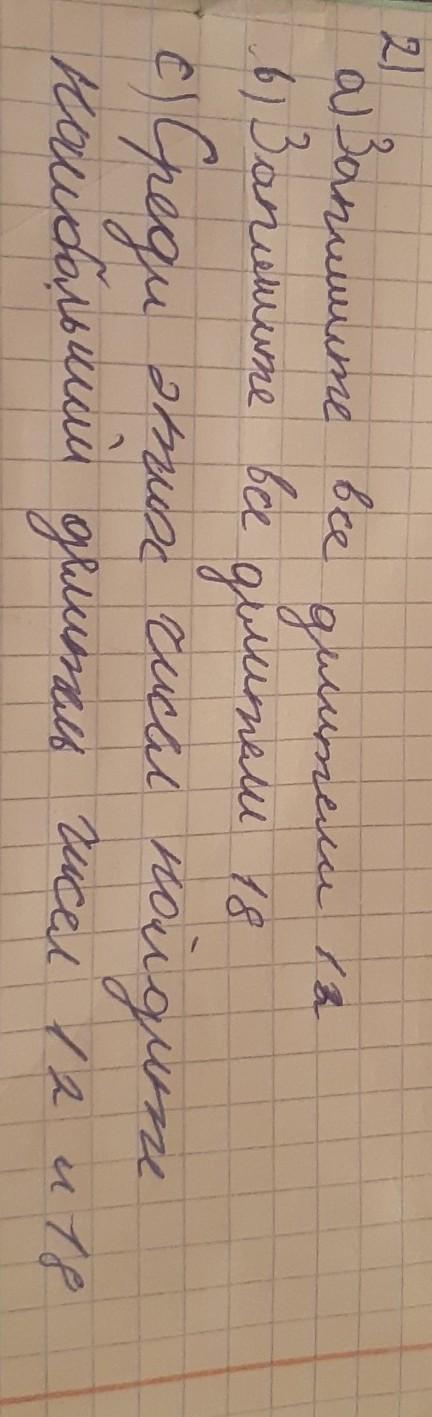 2)
a) Запишите все делители 12
b) Запишите все делители 18
c) Среди этих чисел найдите
наибольший делитель чисел 12 и 18